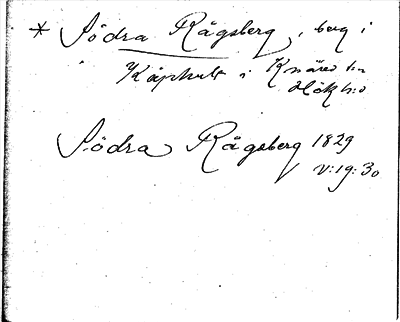 * Södra Rågsberg, berg i
Kåphult i Knäred sn
Hök h:d
Södra Rågsberg 1829
V:19:30